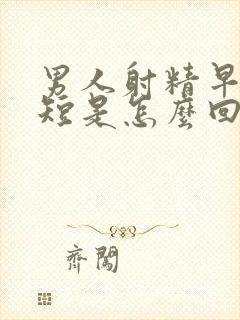 男人射精早
短是怎麼回
齊闖